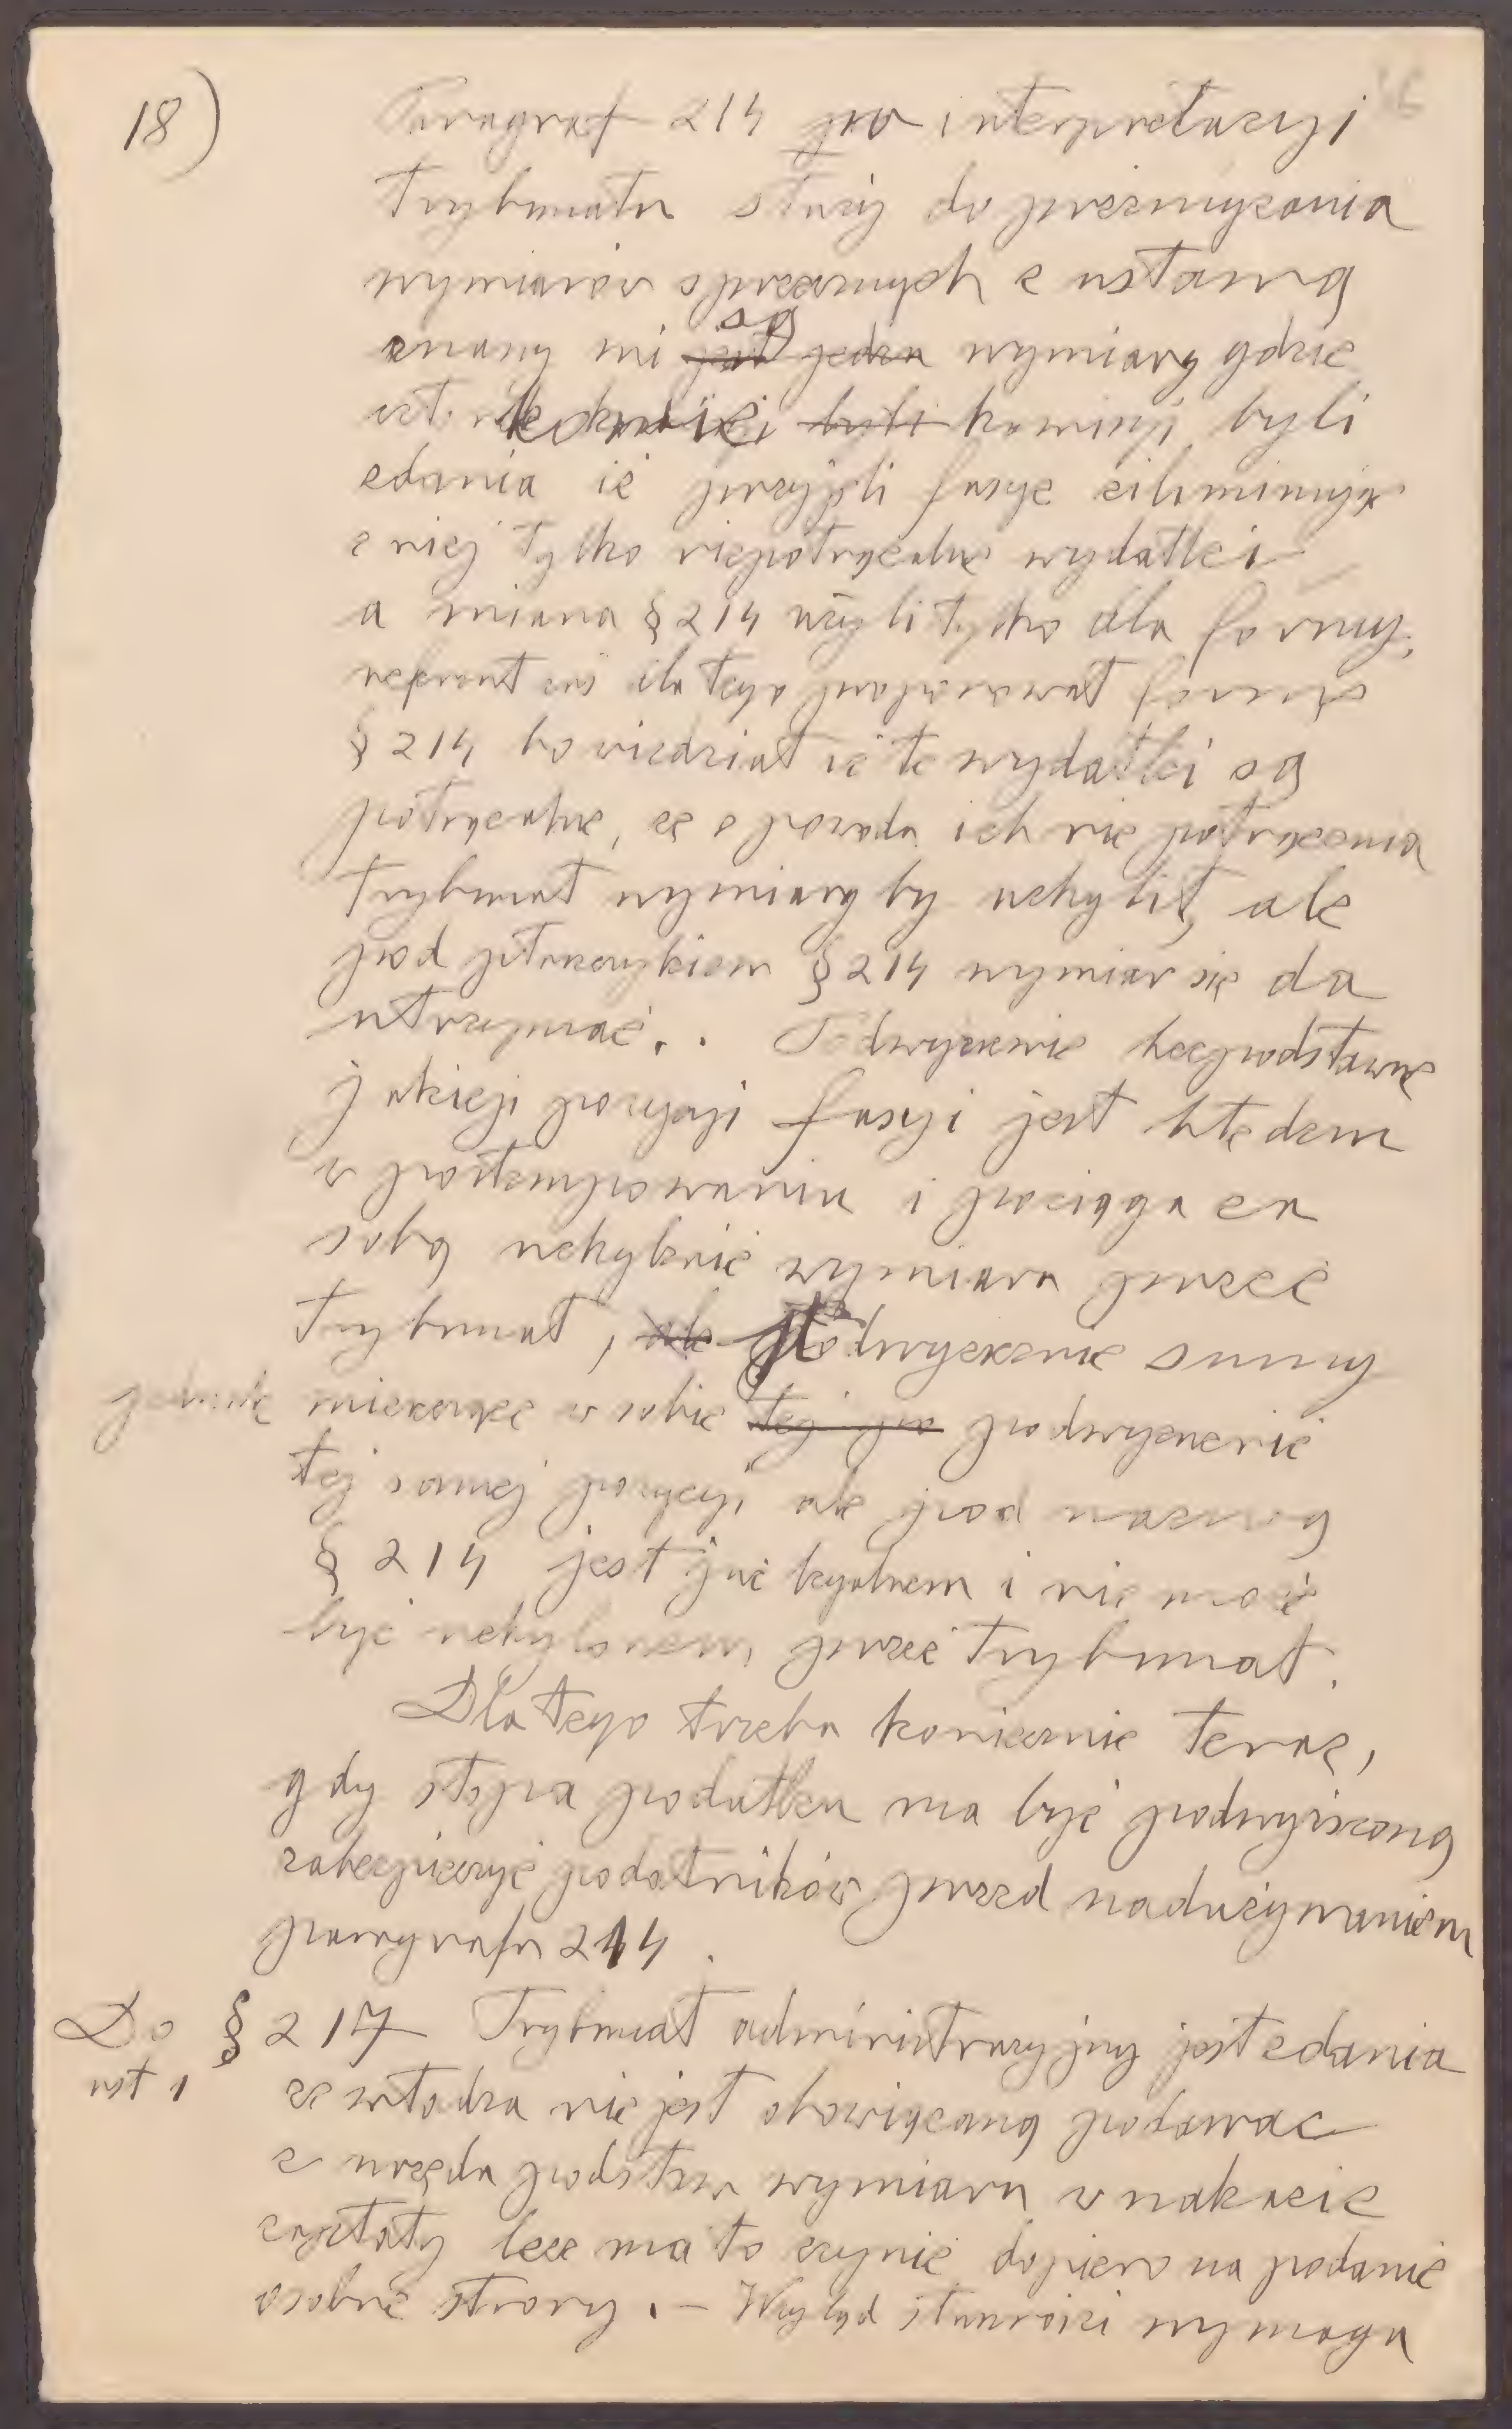 18)
Paragraf 214 po interpretacyi
trybunału służy do przemycania
wymiarów sprzecznych z ustawą
znany mi są jest jeden wymiary gdzie
członkowie byli komisyi byli
zdania iż przyjęli fasyę eiliminując
z niej tylko niepotrącalne wydatki
a miana § 214 użyli tylko dla formy,
referent zaś dlatego proponował formę
§ 214 bo wiedział iż te wydatki są
potrącalne, że z powodu ich nie potrącenia
trybunał wymiary by uchylił, ale
pod płaszczykiem § 214 wymiar się da
utrzymać. . Podwyższenie bezpodstawne
jakiejś pozycyi fasyi jest błędem
w postempowaniu i pociąga za
sobą uchylenie wymiaru przez
trybunał, ale podwyższenie sumy
jednak mieszczące w sobie tej po podwyższenie
tej samej pozycyi ale pod nazwą
§ 214 jest już legalnem i nie może
być uchylonem przez trybunał.
Dlatego trzeba koniecznie teraz,
gdy stopa podatku ma być podwyższoną
zabezpieczyć podatników przed nadużywaniem
paragrafu 214.
Do § 217 Trybunał administracyjny jest zdania
ust 1 że władza nie jest obowiązaną podawac
z urzędu podstaw wymiaru w nakazie
zapłaty lecz ma to czynić dopiero na podanie
osobne strony. – Wzgląd słuszności wymaga